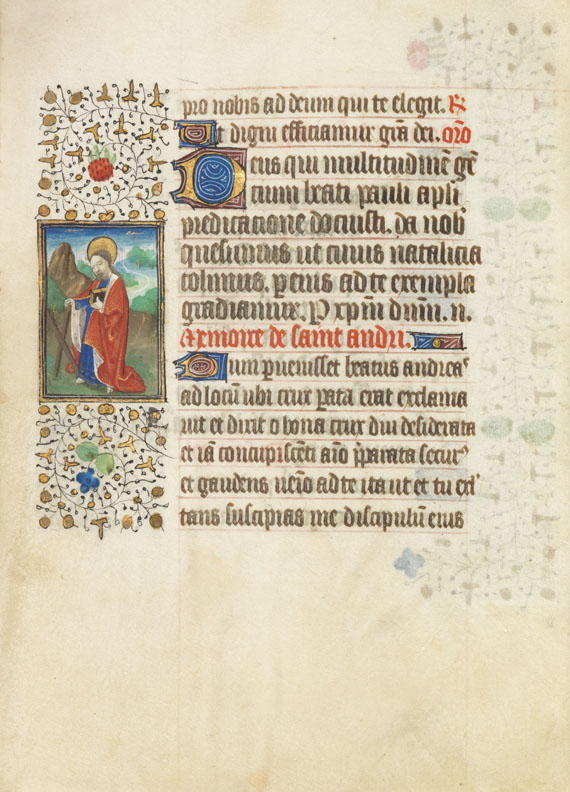 pro nobis ad deum qui te elegit. R
Ut digni efficiamur grã dei. orõ
Deus qui multitudinẽ gẽ
tium beati pauli apli
predicatione docuisti. da nob
quesumus ut cuius natalicia
colimus. eius ad te exempla
gradiamur. P xpm dnm. n.
Memoire de saint andri.
Cum puenisset beatus andreas
ad locũ ubi crux pata erat exclama
uit et dixit o bona crux diu desiderata
et iã concupiscẽti aĩo pparata secur9
et gaudens uenio ad te ita ut et tu exl
tans suscipias me discipulũ eius